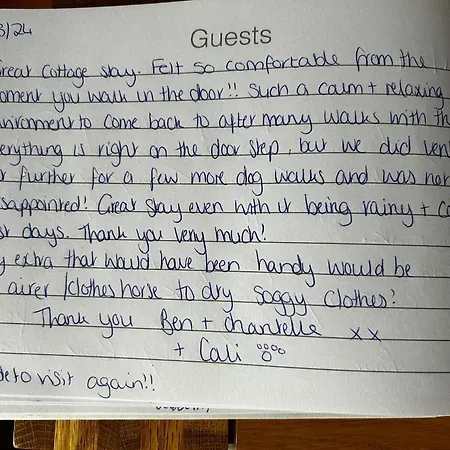 3/24
Guests
reat Cottage stay. Felt so comfortable from the
oment you walk in the door!! Such a calm + relaxing
nvironment to come back to after many walks with th
erything is right on the door step, but we did vent
r further for a few more dog walks and was not
sappointed! Great stay even with it being rainy + co
st days. Thank you very much!
y extra that would have been handy would be
airer / clothes horse to dry soggy clothes?
Thank you Ben + Chantelle xx
+ Cali
to visit again!!